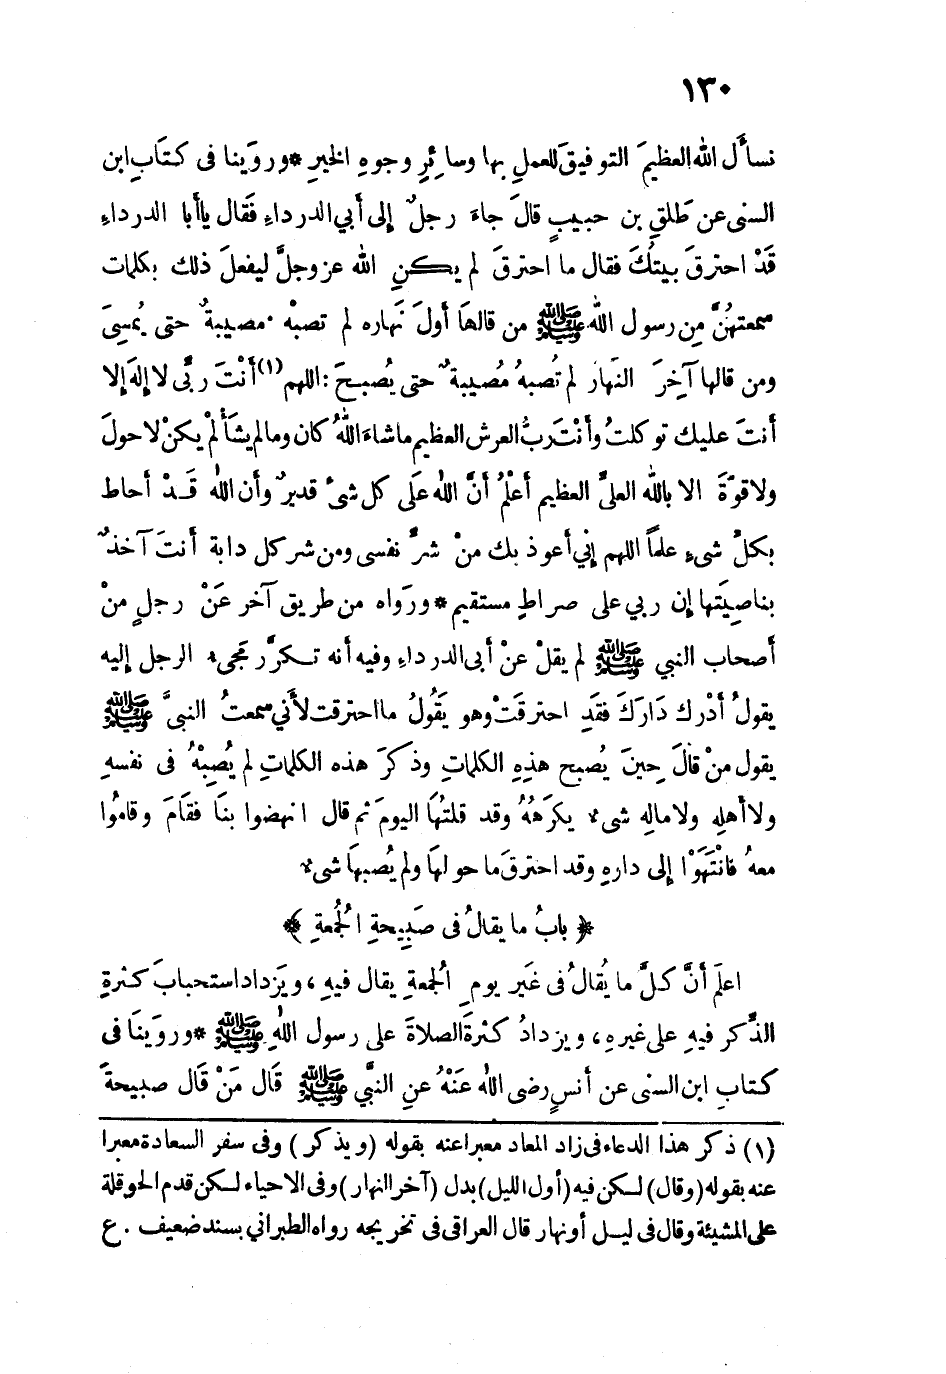 ١٣٠
نسأَل اللهَ العظيمَ التوفيقَ للعملِ بها وسائِرِ وجوهِ الخيرِ * وروَينا فى كتَابِ ابن
السنى عن طَلقِ بن حبيبٍ قالَ جاءَ رجلٌ إلى أبي الدرداءِ فقَال ياأبا الدرداءِ
قَدْ احترقَ بيتُكَ فقال ما احترقَ لم يكنِ اللهُ عز وجلَّ ليفعلَ ذلك بكلمات
سمعتهُنَّ مِن رسول اللهِ ﷺ من قالهَا أولَ نَهاره لم تصبْهُ مصيبةٌ حتى يُمسِىَ
ومن قالها آخِرَ النهَار لم تُصبهُ مُصيبةٌ حتى يُصبحَ : اللهم (١) أَنْتَ ربِّى لا إلهَ إلا
أنتَ عليك توكلتُ وأنْتَ ربُّ العرش العظيم ماشاءَ اللهُ كان ومالم يشأْ لمْ يكنْ لاحولَ
ولاقوّةَ الا باللهِ العلىِّ العظيم أعْلمُ أنَّ اللهَ علَى كل شىْءٍ قديرٌ وأن اللهَ قَدْ أحاط
بكلِّ شىءٍ علماً اللهم إنِّي أعوذ بك منْ شرِّ نفسى ومن شر كل دابة أنتَ آخذٌ
بناصِيَتها إن ربي على صراطٍ مستقيم * ورَواه من طريق آخر عَنْ رجلٍ منْ
أصحاب النبي ﷺ لم يقلْ عنْ أبى الدرداءِ وفيه أنه تكرَّر مجىءُ الرجل إليه
يقولُ أدْرك دَارَكَ فقَدِ احترقَتْ وهو يَقُولُ مااحترقت لأَني سمعتُ النبىَّ ﷺ
يقول منْ قالَ حِينَ يُصبح هذِهِ الكلماتِ وذكرَ هذه الكلماتِ لم يُصِبْهُ فى نفسهِ
ولاأهلِه ولامالِه شىءٌ يكرَهُهُ وقد قلتُهَا اليومَ ثم قال انهضوا بنَا فقَامَ وقامُوا
معهُ فانْتَهَوْا إلى دارهِ وقد احترقَ ما حولهَا ولم يُصبهَا شىءٌ
﴿ بابُ ما يقالُ فى صَبِيحةِ الجُمعةِ ﴾
اعلَم أنَّ كلَّ ما يُقالُ فى غَير يومِ الجمعةِ يقال فيهِ ، ويَزداد استحبابَ كثرةِ
الذِّكر فيهِ على غيرهِ ، ويزدادُ كثرةَ الصلاةَ على رسول اللهِ ﷺ * وروَينَا فى
كتابِ ابن السنى عن أنسٍ رضى اللهُ عَنْهُ عنِ النبِّي ﷺ قَال مَنْ قَال صبيحةَ
(١) ذكر هذا الدعاء فى زاد المعاد معبرا عنه بقوله (ويذكر) وفى سفر السعادة معبرا
عنه بقوله (وقال) لكن فيه (أول الليل) بدل (آخر النهار) وفى الاحياء لكن قدم الحوقلة
على المشيئة وقال فى ليل أونهار قال العراقى فى تخريجه رواه الطبراني بسند ضعيف . ع